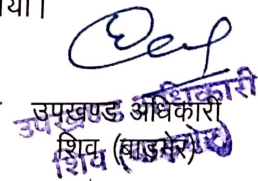 या।
उपखण्ड अधिकारी
शिव (बाडमेर)
उपखण्ड अधिकारी
शिव (बाड़मेर)